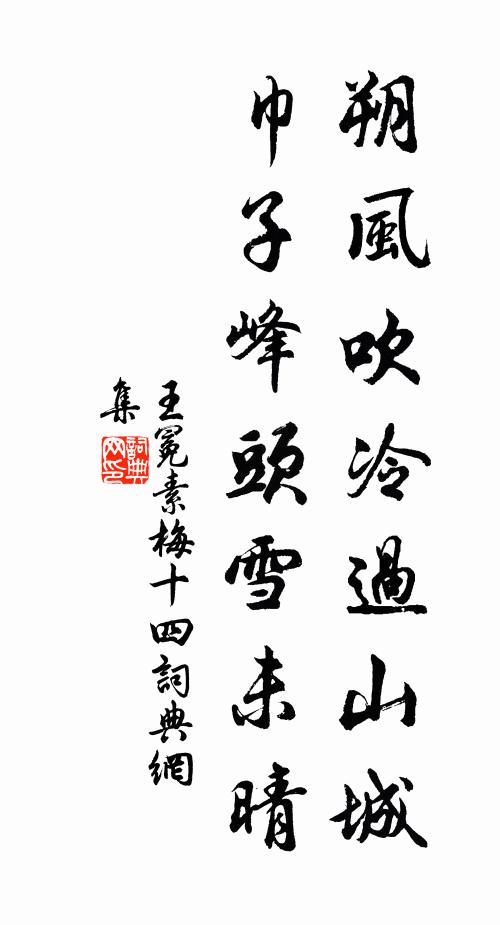 朔風吹冷過山城
巾子峰頭雪未晴
王冕素梅十四詞典網
集
詞典网印